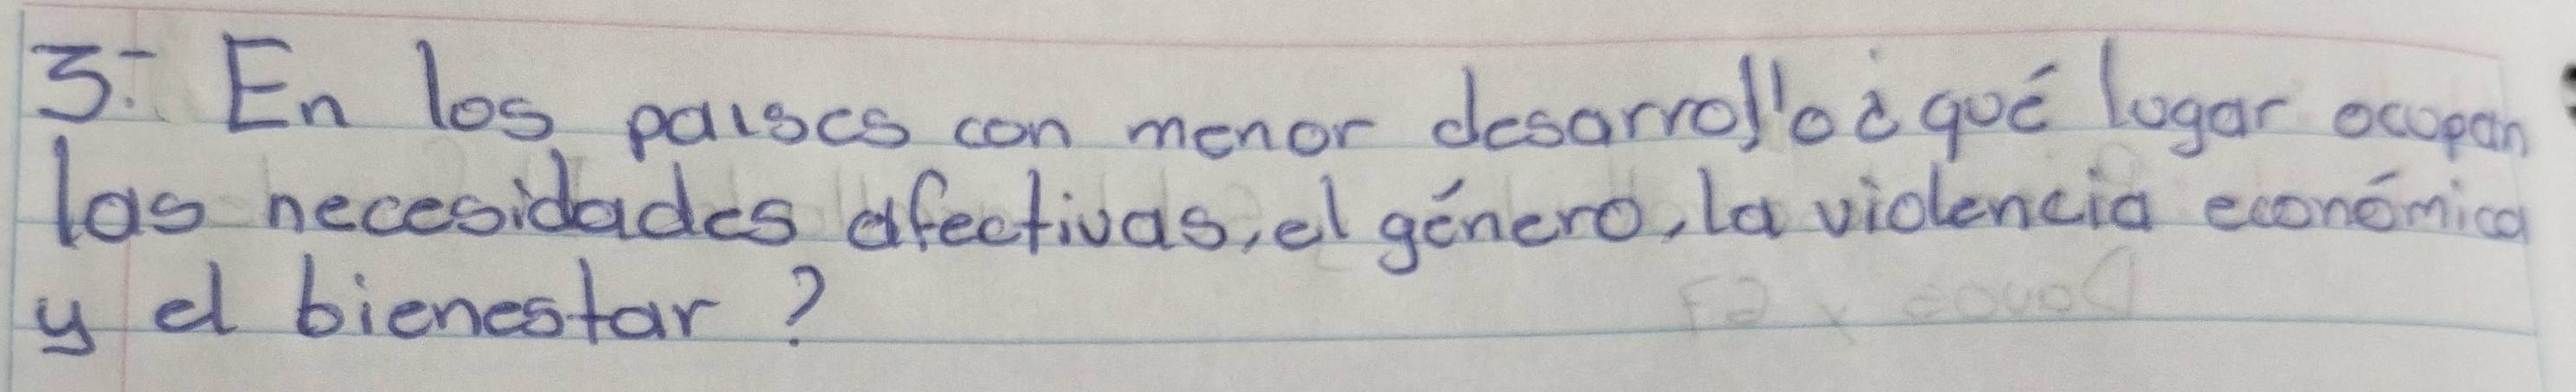 3.- En los paises con menor desarrollo ¿qué lugar ocupan
las necesidades afectivas, el género, la violencia económica
y el bienestar?